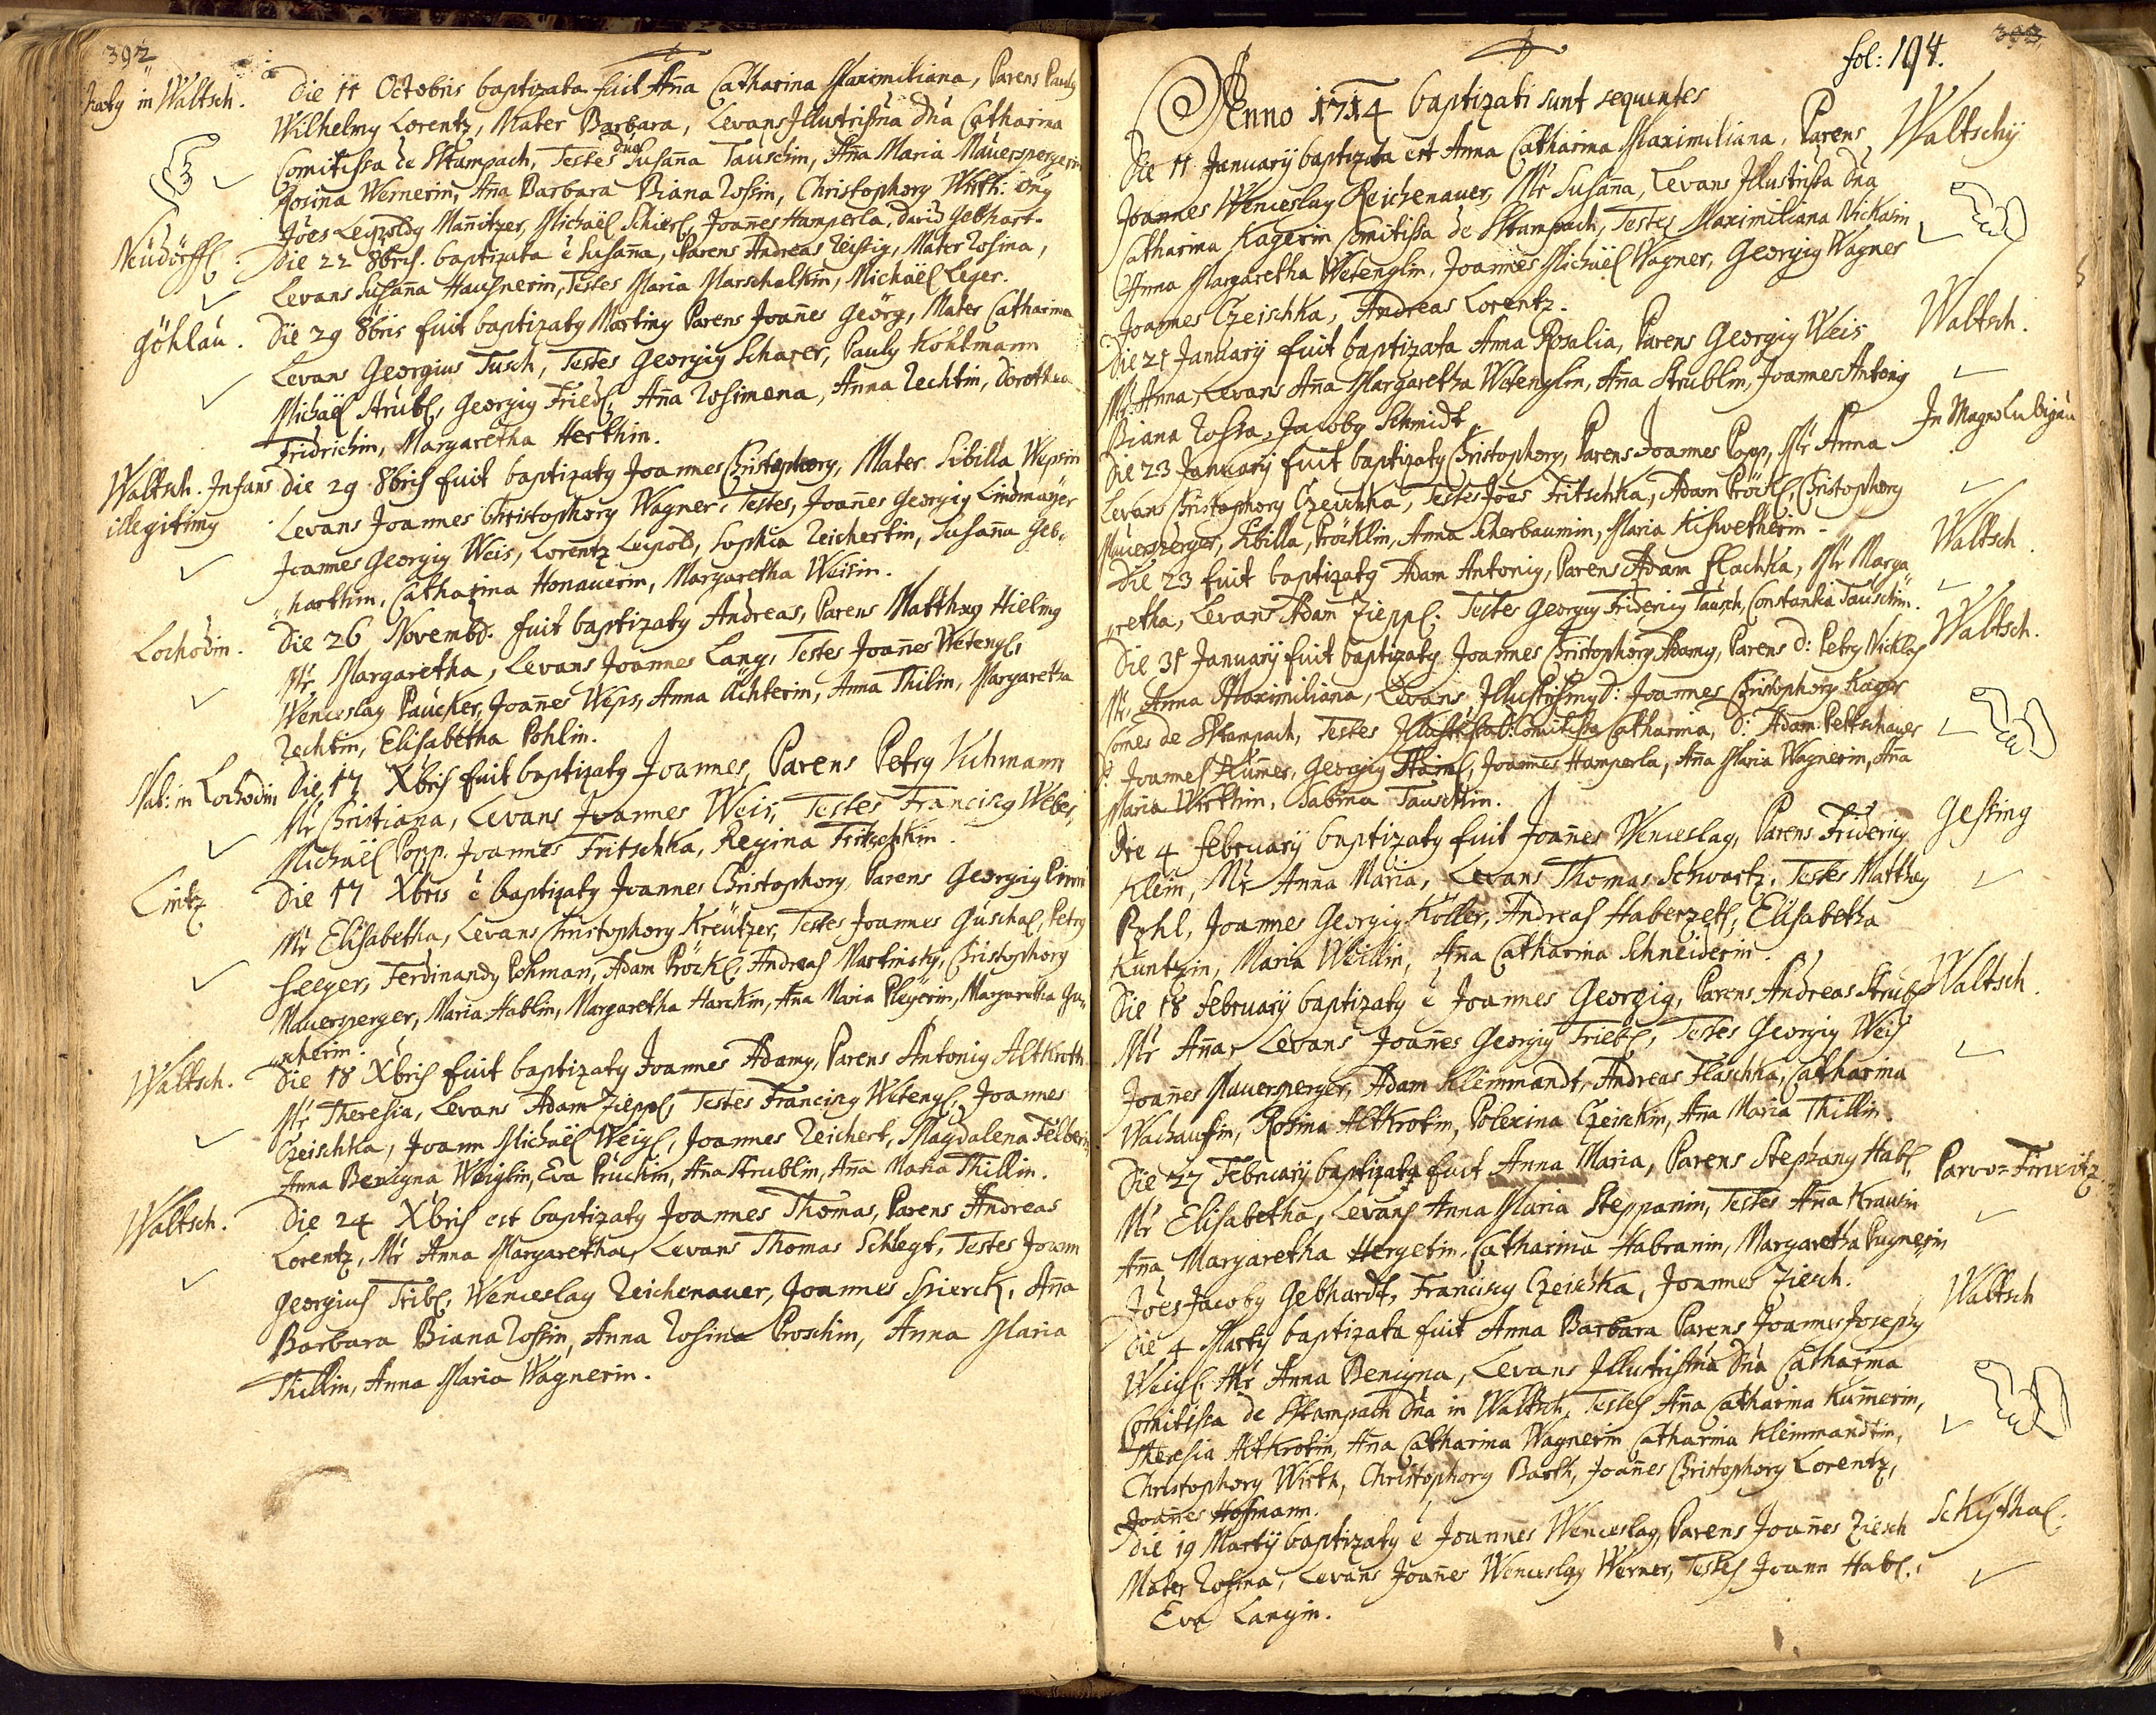 392
Naty in Waltsch. Die 11 Octobris baptizata fuit Aña Catharina Maximiliana, Parens Pauly
Wilhelmy Lorentz, Mater Barbara, Levans Illustrißma Dña Catharina
Comitissa de Stampach, Testes Dña Susaña Tauschin, Aña Maria Mauerspergerin
Rosina Wernerin, Aña Barbara Bianarossin, Christophory Wirth:
Jões Leopoldy Mañitzer, Michaël Schierl, Joañes Hamperla, David Gebhart.
Neudörffl. Die 22 8bris. baptizata ē Susaña, Parens Andreas Reissig, Mater Rosina,
Levans Susaña Haußnerin, Testes Maria Marschalkin, Michaël Leger.
Göhlau. Die 29 8bris fuit baptizaty Martiny Parens Joañes Georg, Mater Catharina
Levans Georgius Tusch, Testes Georgiy Scharer, Pauly Kohlmann
Michaël Strubl, Georgiy Friedl, Aña Rosimena, Anna Zechtin, Dorothea
Fridrichin, Margaretha Herthin.
Waltsch. Infans Die 29 8bris fuit baptizaty Joannes Christophory, Mater Sibilla Wepsin
illegitimy Levans Joannes Christophory Wagner. Testes, Joañes Georgiy Lindmayer
Joannes Georgiy Weis, Lorentz Leipold, Sophia Reichertin, Susaña Geb„
„harthin, Catharina Honauerin, Margaretha Weisin.
Lochodin. Die 26 Novembr. fuit baptizaty Andreas, Parens Matthæy Hielmy
Mr Margaretha, Levans Joannes Lang, Testes Joañes Wetengl,
Wenceslay Paucker, Joañes Weps, Anna Achterin, Anna Thilin, Margaretha
Zechtin, Elisabetha Pohlin.
Nat: in Lochodin Die 17 Xbris fuit baptizaty Joannes, Parens Petry Kuhmann
Mr Christiana, Levans Joannes Weis, Testes Francisty Weber,
Michaël Popp. Joannes Fritschka, Regina Fritschkin.
Lintz Die 17 Xbris ē baptizaty Joannes Christophory, Parens Georgiy
Mr Elisabetha, Levans Christophory Kreützer, Testes Joannes Guschal, Petry
Seeger, Ferdinandy Pohman, Adam Pröckl, Andreas Martinsky, Christophory
Mauersperger, Maria Hablin, Margaretha Harckin, Aña Maria Pleyerin, Margaretha Gu„
„ntherin.
Waltsch. Die 18 Xbris fuit baptizaty Joannes Adamy, Parens Antoniy Altkroth
Mr Theresia, Levans Adam Zieppl, Testes Francisty Wetengl, Joannes
Czeischka, Joann Michaël Weigl, Joannes Reichert, Magdalena Felberin
Anna Benigna Weiglin, Eva Pruckin, Aña Strublin, Aña Maria Thillin.
Waltsch. Die 24 Xbris est baptizaty Joannes Thomas, Parens Andreas
Lorentz, Mr Anna Margaretha, Levans Thomas Schlegt, Testes Joann
Georgius Tribl, Wenceslay Reichenauer, Joannes Spierck, Aña
Barbara Bianarossin, Anna Rosina Proschin, Anna Maria
Thillin, Anna Maria Wagnerin.
393
fol: 194.
Anno 1714 baptizati sunt sequentes
Die 11 January baptizata est Anna Catharina Maximiliana, Parens Waltschy
Joannes Wenceslay Reichenauer, Mr Susaña, Levans Illustrissa Dña
Catharina Kagerin Comitissa de Stampach, Testes Maximiliana Nicklasin
Anna Margaretha Wetenglin, Joannes Michaël Wagner, Georgiy Wagner
Joannes Czeischka, Andreas Lorentz.
Die 21 January fuit baptizata Anna Rosalia, Parens Georgiy Weis Waltsch.
Mr. Anna, Levans Aña Margaretha Wetenglin, Aña Strublin, Joannes Antoniy
Biana Rossa, Jacoby Schmidt
Die 23 January fuit baptizaty Christophory, Parens Joannes Popp, Mr Anna In Magno Lubigau
Levans Christophory Czeischka, Testes Joães Fritschka, Adam Pröckl, Christophory
Mauersperger, Sibilla Pröcklin, Anna Scherbaumin, Maria Kiswetherin
Die 23 fuit baptizaty Adam Antoniy, Parens Adam Flachka, Mr Marga„ Waltsch.
„retha, Levans Adam Zieppl. Testes Georgiy Frideriy Tausch, Constantia Tauschin.
Die 31 January fuit baptizaty Joannes Christophory Adamy, Parens D: Petry Nicklas Waltsch.
Mr. Anna Maximiliana, Levans Illustrissimy D: Joannes Christophory Kager
Comes de Stampach, Testes Illustrissa D: Comitissa Catharina, D: Adam Pettschauer
D: Joannes Kumer, Georgiy Haiml, Joannes Hamperla, Aña Maria Wagnerin, Aña
Maria Wirthin, Sabina Tauschin.
Die 4 February baptizaty fuit Joañes Wenceslay, Parens Frideriy Gessing
Klein, Mr Anna Maria, Levans Thomas Schwartz, Testes Matthæy
Pohl, Joannes Georgiy Koller, Andreas Haberzetl, Elisabetha
Kuntzin, Maria Weislin, Aña Catharina Schneiderin.
Die 18 February baptizaty ē Joannes Georgiy, Parens Andreas Strubl Waltsch.
Mr Aña, Levans Joañes Georgiy Triebl, Testes Georgiy Weis
Joañes Mauersperger, Adam Klemmandt, Andreas Flaschka, Catharina
Wachaufin, Rosina Altkrotin, Polexina Czeischin, Aña Maria Thillin.
Die 27 February baptizata fuit Anna Maria, Parens Stephany Habl Parvo=Tirxcitz
Mr Elisabetha, Levans Anna Maria Steppanin, Testes Aña Krausin
Aña Margaretha Hergetin, Catharina Habranin, Margaretha Pugnerin
Jões Jacoby Gebhardt, Francisty Czeischka, Joannes Ziesch.
Die 4 Marty baptizata fuit Anna Barbara Parens Joannes Josephy Waltsch
Weigl, Mr Anna Benigna, Levans Illustrissima Dña Catharina
Comitissa de Stampach Dña in Waltsch, Testes Aña Catharina Kumerin,
Theresia Altkrotin, Aña Catharina Wagnerin Catharina Klemmandtin,
Christophory Wirth, Christophory Barth, Joañes Christophory Lorentz,
Joañes Hofmann.
Die 19 Marty baptizaty ē Joannes Wenceslay, Parens Joañes Ziesch Schythal.
Mater Rosina, Levans Joañes Wenceslay Werner, Testes Joann Habl,
Eva Langin.